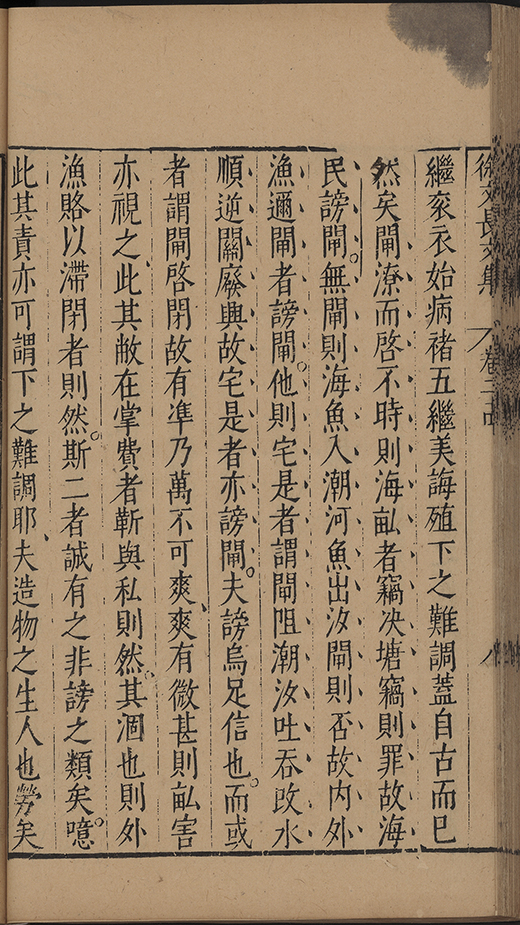 徐文長文集 卷二十
繼衮衣始病褚五繼美誨殖下之難調蓋自古而已
然矣閘潦而啓不時則海畝者竊决塘竊則罪故海
民謗閘。無閘則海魚入潮河魚出汝閘則否故内外
漁邇閘者謗閘。他則宅是者謂閘阻潮汝吐吞改水
順逆關廢興故宅是者亦謗閘。夫謗烏足信也。而或
者謂閘啓閉故有準乃萬不可爽、爽有微甚則畝害
亦視之、此其敝在掌費者靳與私則然。其涸也則外
漁賂以滯閉者則然。斯二者誠有之非謗之類矣。噫
此其責亦可謂下之難調耶、夫造物之生人也勞矣